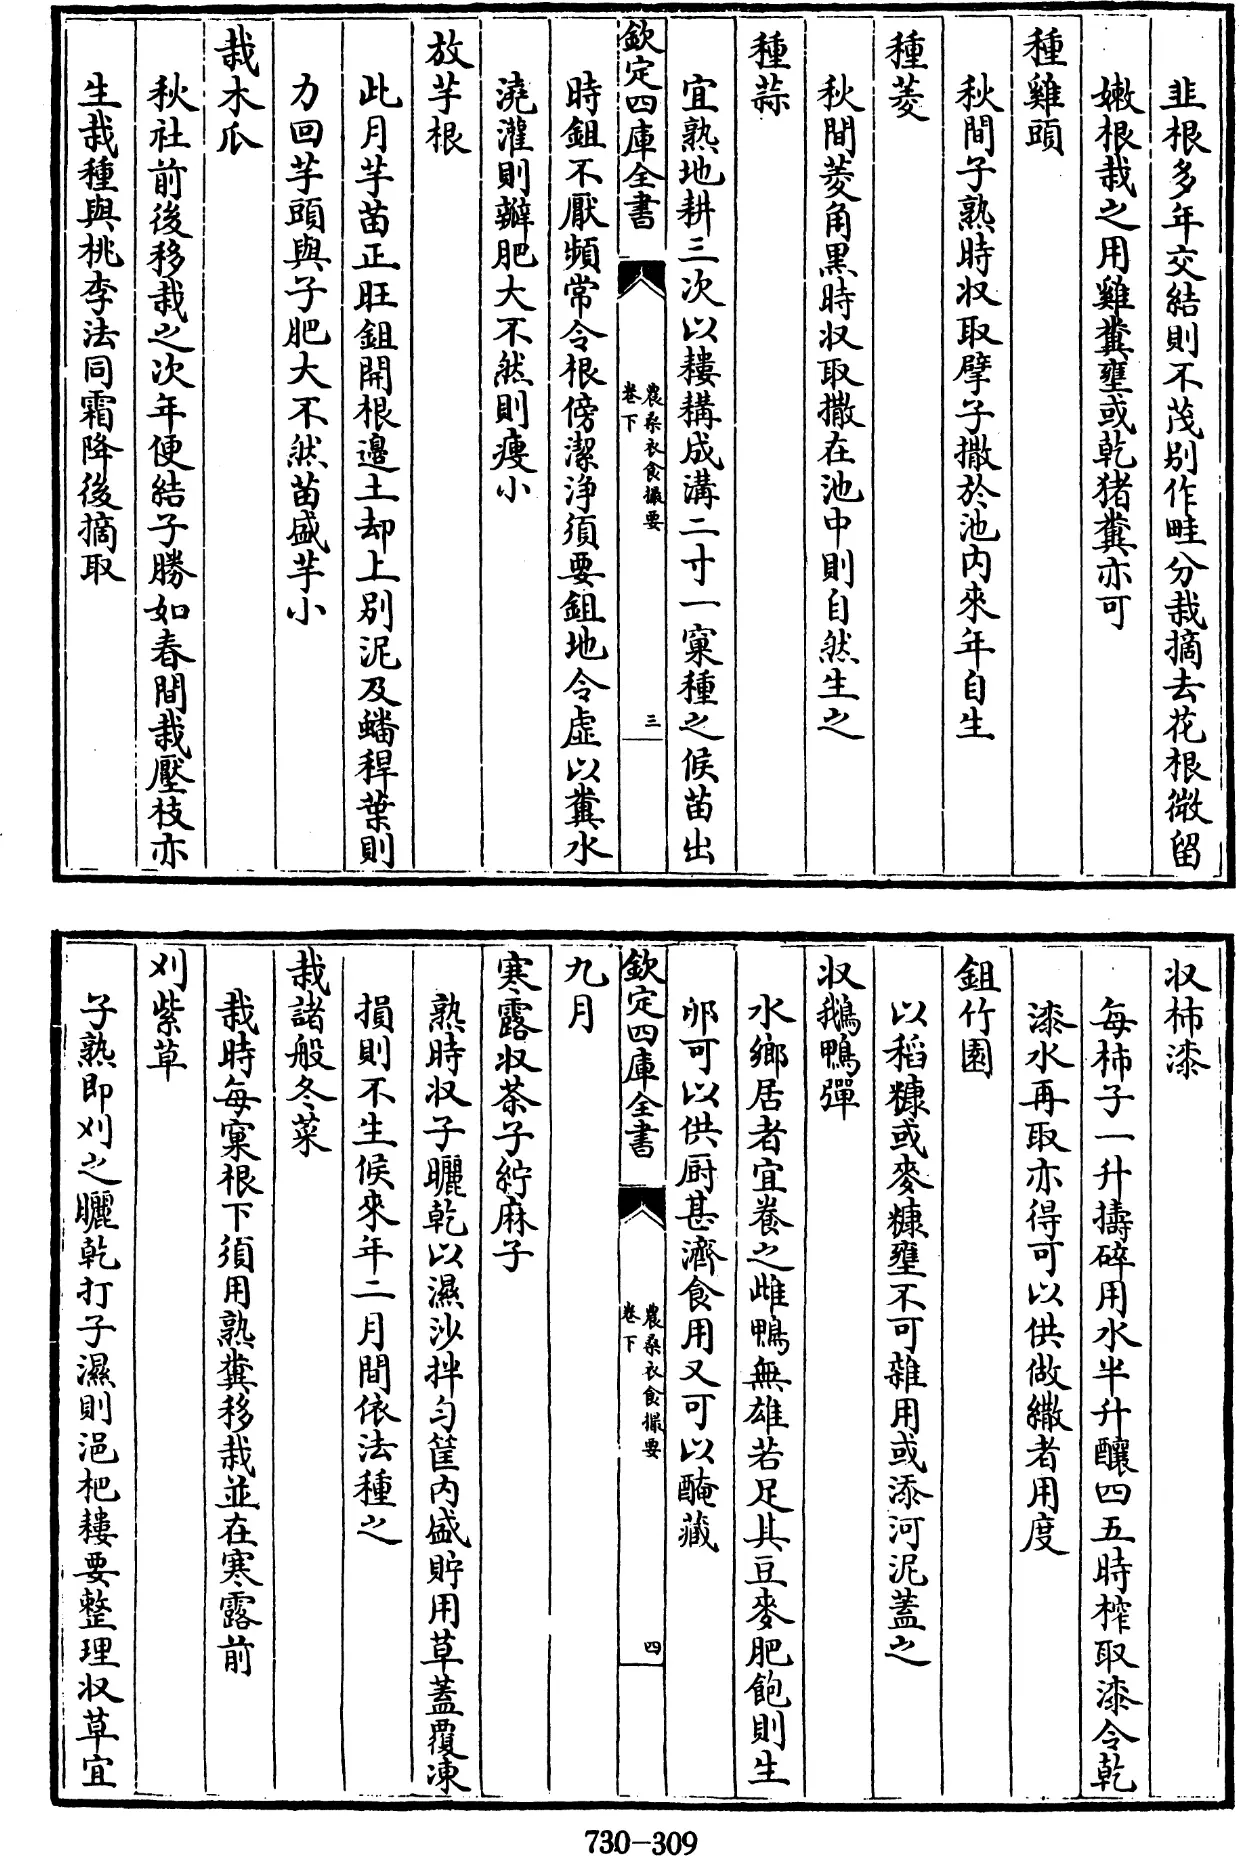 韭根多年交結則不茂别作畦分栽摘去花根微留
嫩根栽之用雞糞壅或乾猪糞亦可
種雞頭
秋間子熟時収取擘子撒於池内來年自生
種菱
秋間菱角黒時収取撒在池中則自然生之
種蒜
宜熟地耕三次以耬耩成溝二寸一窠種之候苗出
欽定四庫全書
農桑衣食撮要
卷下
三
時鉏不厭頻常令根傍潔浄須要鉏地令虛以糞水
澆灌則瓣肥大不然則瘦小
放芋根
此月芋苗正旺鉏開根邊土却上别泥及蟠稈葉則
力回芋頭與子肥大不然苗盛芋小
栽木瓜
秋社前後移栽之次年便結子勝如春間栽壓枝亦
生栽種與桃李法同霜降後摘取
収柿漆
每柿子一升擣碎用水半升釀四五時榨取漆令乾
漆水再取亦得可以供做繖者用度
鉏竹園
以稻糠或麥糠壅不可雜用或添河泥蓋之
収鵝鴨彈
水鄉居者宜養之雌鴨無雄若足其豆麥肥飽則生
卵可以供厨甚濟食用又可以醃藏
欽定四庫全書
農桑衣食撮要
卷下
四
九月
寒露収茶子紵麻子
熟時収子曬乾以濕沙拌匀筐内盛貯用草蓋覆凍
損則不生候來年二月間依法種之
栽諸般冬菜
栽時每窠根下須用熟糞移栽並在寒露前
刈紫草
子熟即刈之曬乾打子濕則浥杷耬要整理収草宜
730-309